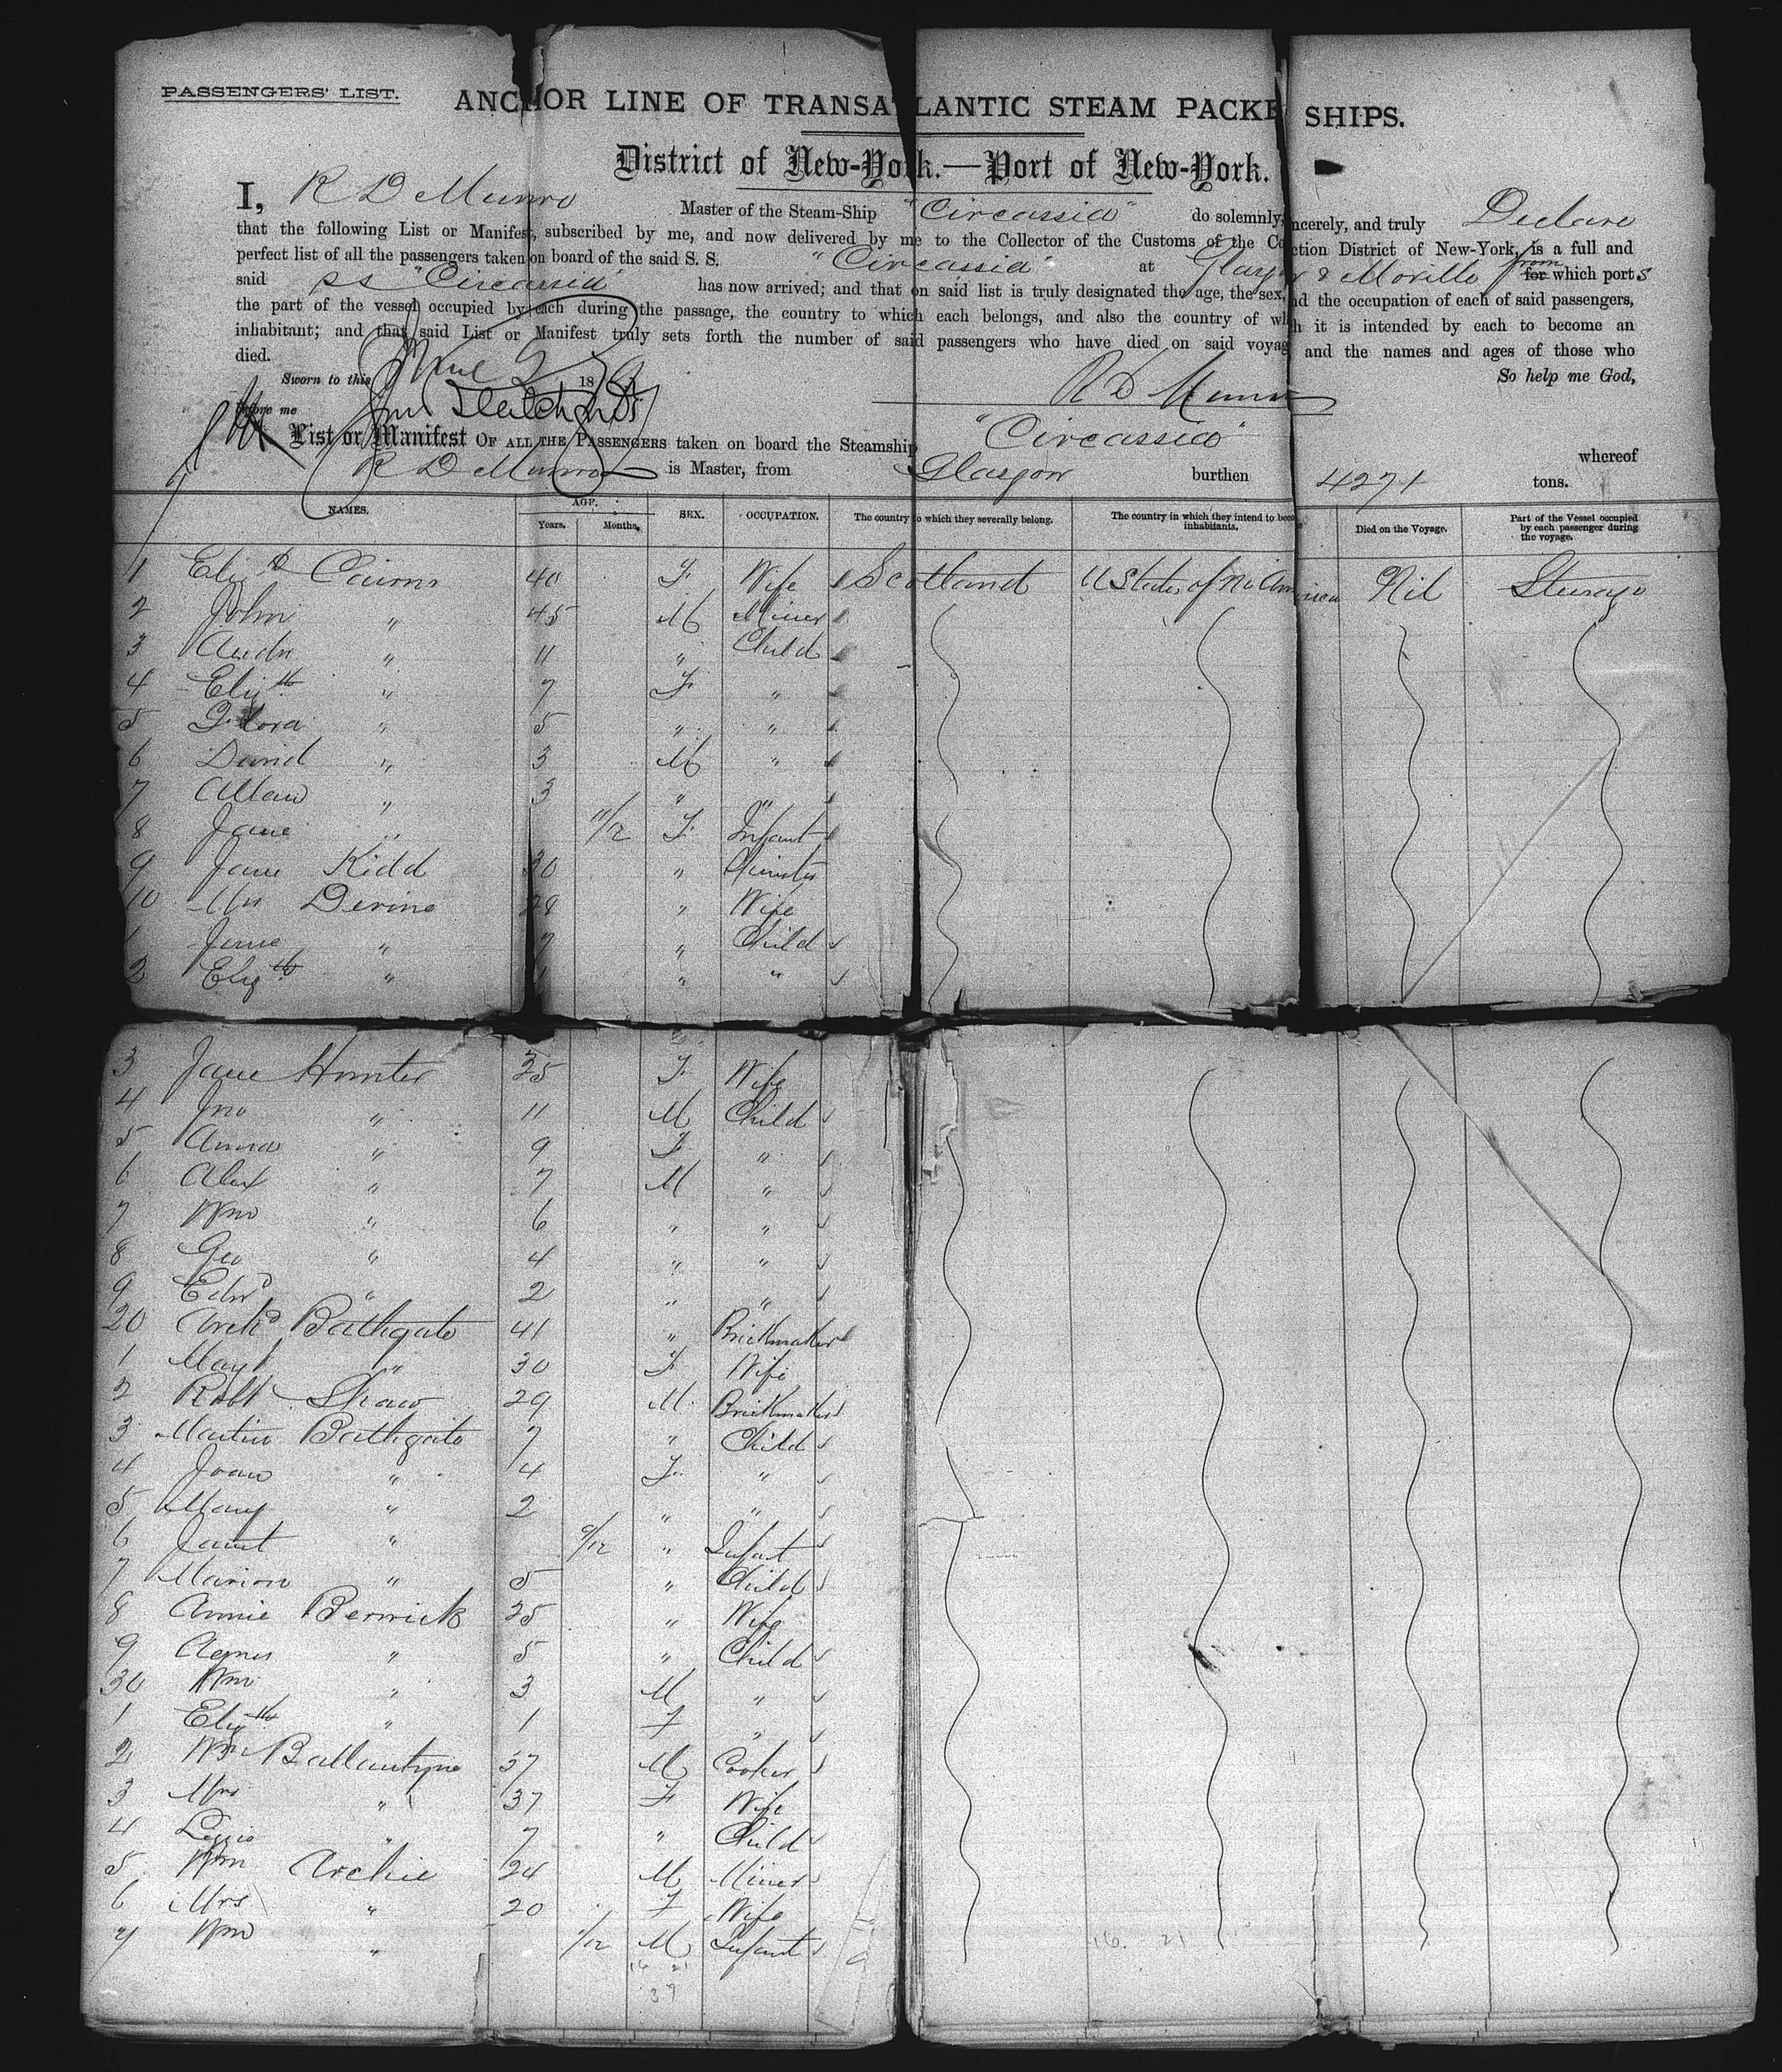 PASSENGERS' LIST.
ANCHOR LINE OF TRANSATLANTIC STEAM PACKE SHIPS.
District of New-York.—Port of New-York.
I, R D Munro Master of the Steam-Ship "Circassia" do solemnly, ncerely, and truly Declare
that the following List or Manifest, subscribed by me, and now delivered by me to the Collector of the Customs of the Co ction District of New-York, is a full and
perfect list of all the passengers taken on board of the said S. S. "Circassia" at Glasgow & Moville from for which ports
said SS "Circassia" has now arrived; and that on said list is truly designated the age, the sex, nd the occupation of each of said passengers,
the part of the vessel occupied by each during the passage, the country to which each belongs, and also the country of wh h it is intended by each to become an
inhabitant; and that said List or Manifest truly sets forth the number of said passengers who have died on said voyag and the names and ages of those who
died. So help me God,
Sworn to this June 18 R D Munro
before me
List or Manifest OF ALL THE PASSENGERS taken on board the Steamship "Circassia" whereof
R D Munro is Master, from Glasgow burthen 4271 tons.
NAMES. AGE. Years. Months. SEX. OCCUPATION. The country to which they severally belong. The country in which they intend to beco inhabitants. Died on the Voyage. Part of the Vessel occupied by each passenger during the voyage.
1 Elizth Cairns 40 F Wife Scotland U States of No America Nil Steerage
2 John " 45 M Miner
3 Andw " 11 " Child
4 Elizth " 7 F "
5 Flora " 5 " "
6 David " 3 M "
7 Allan " 3 " "
8 Jane " 11/12 F Infant
9 Jane Kidd 30 " Spinster
10 Mrs Devine 28 " Wife
1 Jane " 7 " Child
2 Elizth " 1 " "
3 Jane Hunter 35 F Wife
4 Jno " 11 M Child
5 Anna " 9 F "
6 Alex " 7 M "
7 Wm " 6 " "
8 Geo " 4 " "
9 Edwd " 2 " "
20 Archd Bathgate 41 " Brickmaker
1 Mayt " 30 F Wife
2 Robt Shaw 29 M Brickmaker
3 Martin Bathgate 7 " Child
4 Joan " 4 F "
5 Mary " 2 " "
6 Janet " 9/12 " Infant
7 Marion " 5 " Child
8 Annie Berwick 25 " Wife
9 Agnes " 5 " Child
30 Wm " 3 M "
1 Elizth " 1 F "
2 Wm Ballantyne 37 M Cooker
3 Mrs " 37 F Wife
4 Lizzie " 7 " Child
5 Wm Archie 24 M Miner
6 Mrs " 20 F Wife
7 Wm " /12 M Infant
16 21 16. 21
37